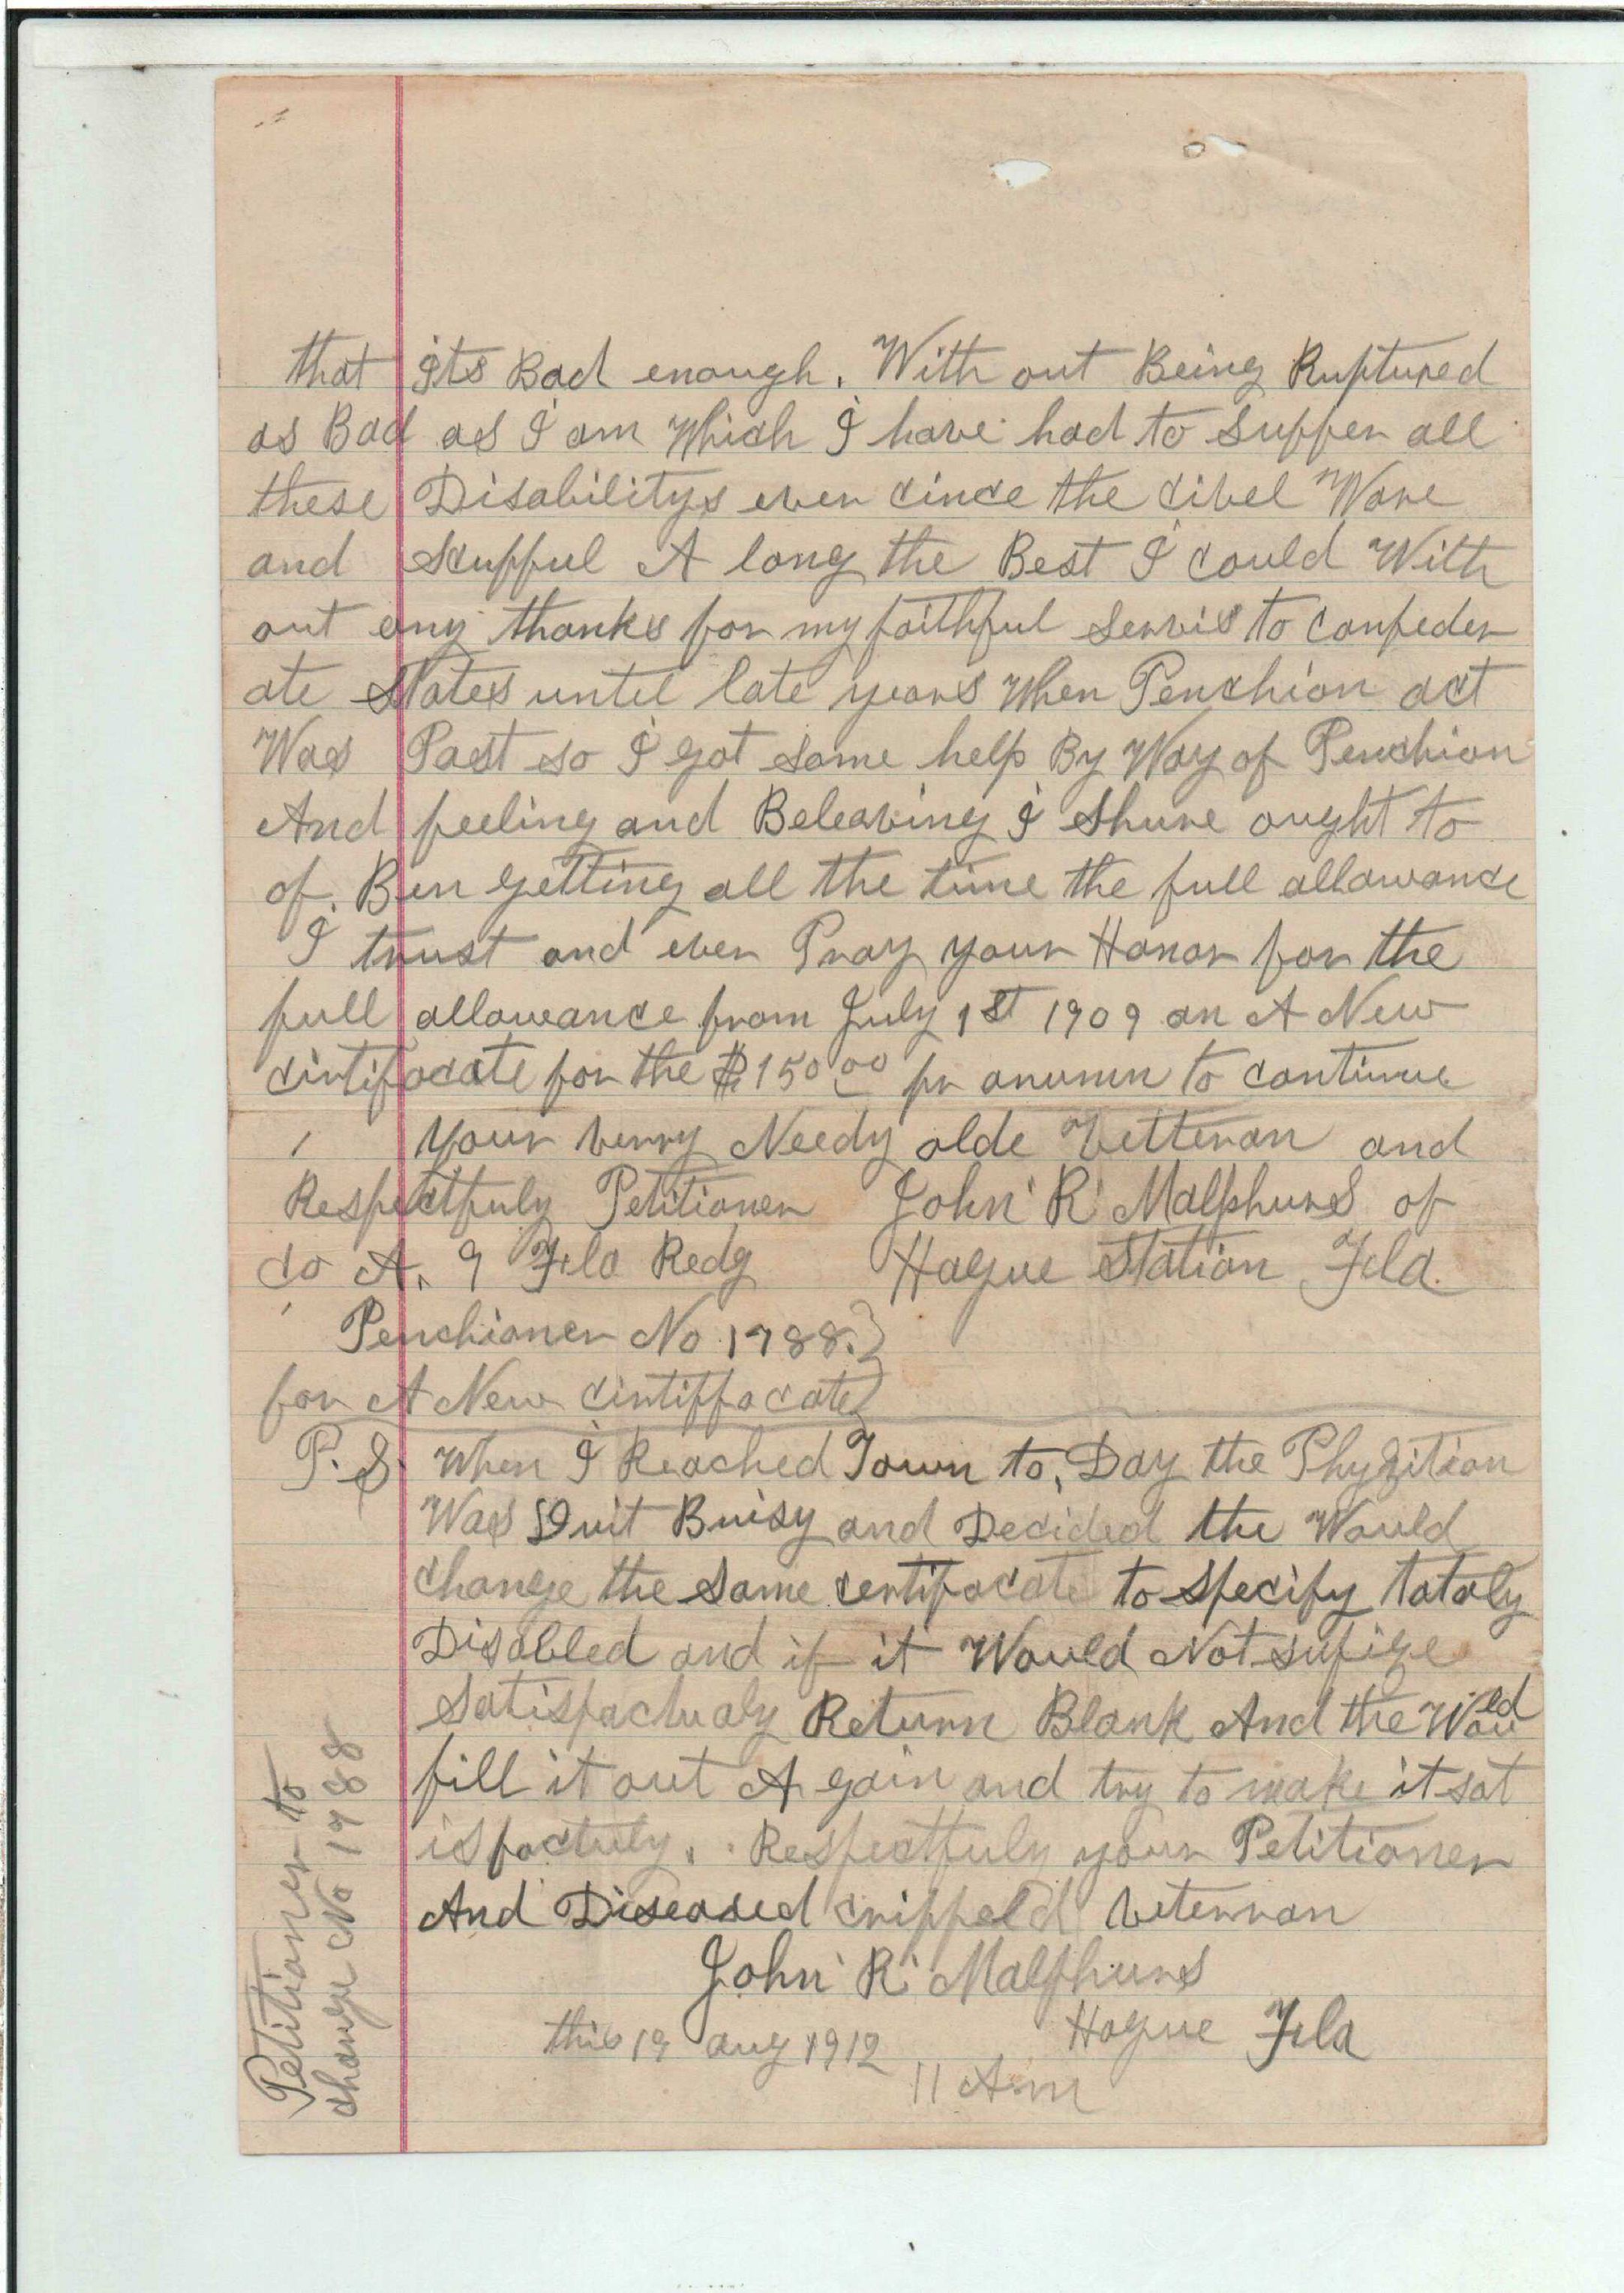 that its Bad enough. With out Being Ruptured
as Bad as I am Which I have had to Suffer all
these Disabilitys ever cince the civel Ware
and Scufful A long the Best I could With
out eny thanks for my faithful Servis to Confeder
ate States until late years When Penchion act
Was Past so I got some help By Way of Penchion
And feeling and Beleaving I Shure ought to
of Ben getting all the time the full allowance
I trust and ever Pray your Honor for the
full allowance from July 1st 1909 an A New
cirtifocate for the $150.00 pr anumn to continue
Your verry Needy olde Vetteran and
Respectfuly Petitioner John R Malphurs of
Co A. 9 Fla Redg Hague Station Fla.
Penchioner No 1788.
for A New cirtiffocate
P.S. When I Reached Town to, Day the Phyzition
Was Quit Buisy and Decided the Would
change the Same certifocate to Specify tataly
Disabled and if it Would Not sufize
Satisfactualy Return Blank And the Would
fill it out A gain and try to make it sat
isfactuly. Respectfuly your Petitioner
And Diseased crippeld veterran
John R Malphurs
this 19 aug 1912 Hague Fla
11 A.m
Petitioner to
change No 1788